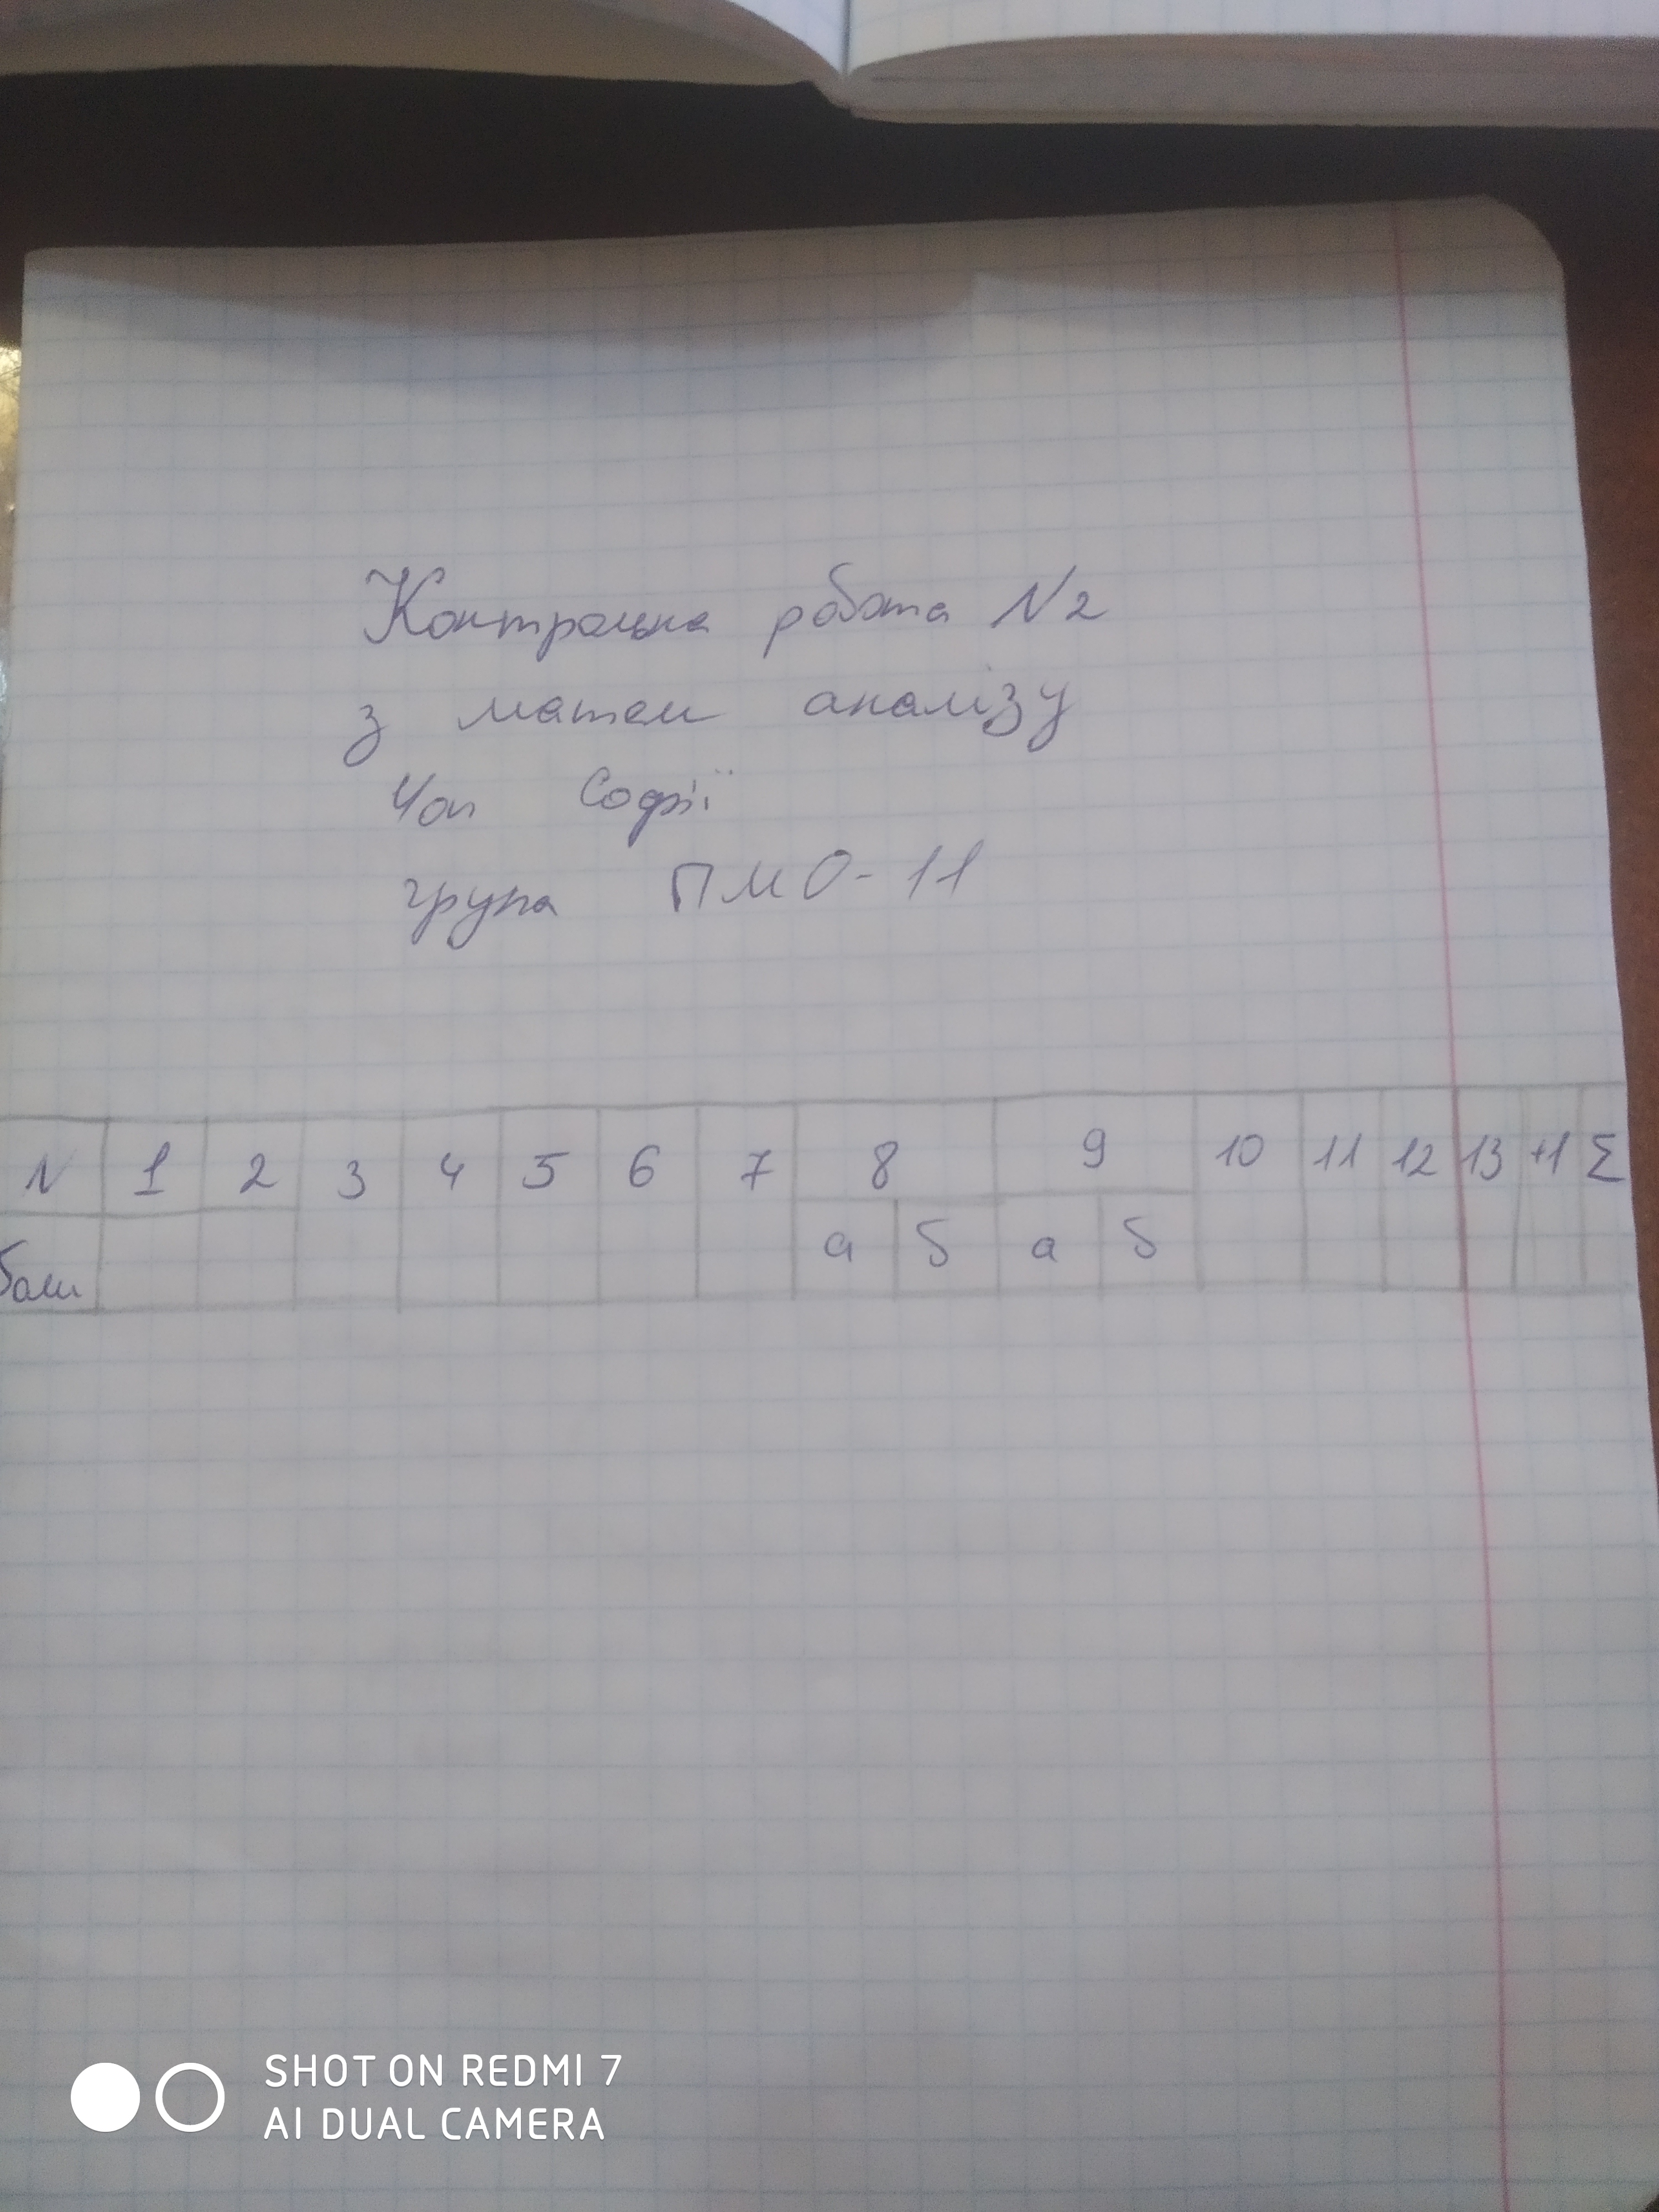 Контрольна робота N2
з матем аналізу
Чоп Софії
група ПМО-11
N 1 2 3 4 5 6 7 8 9 10 11 12 13 +1 Σ
бали а б а б
SHOT ON REDMI 7
AI DUAL CAMERA